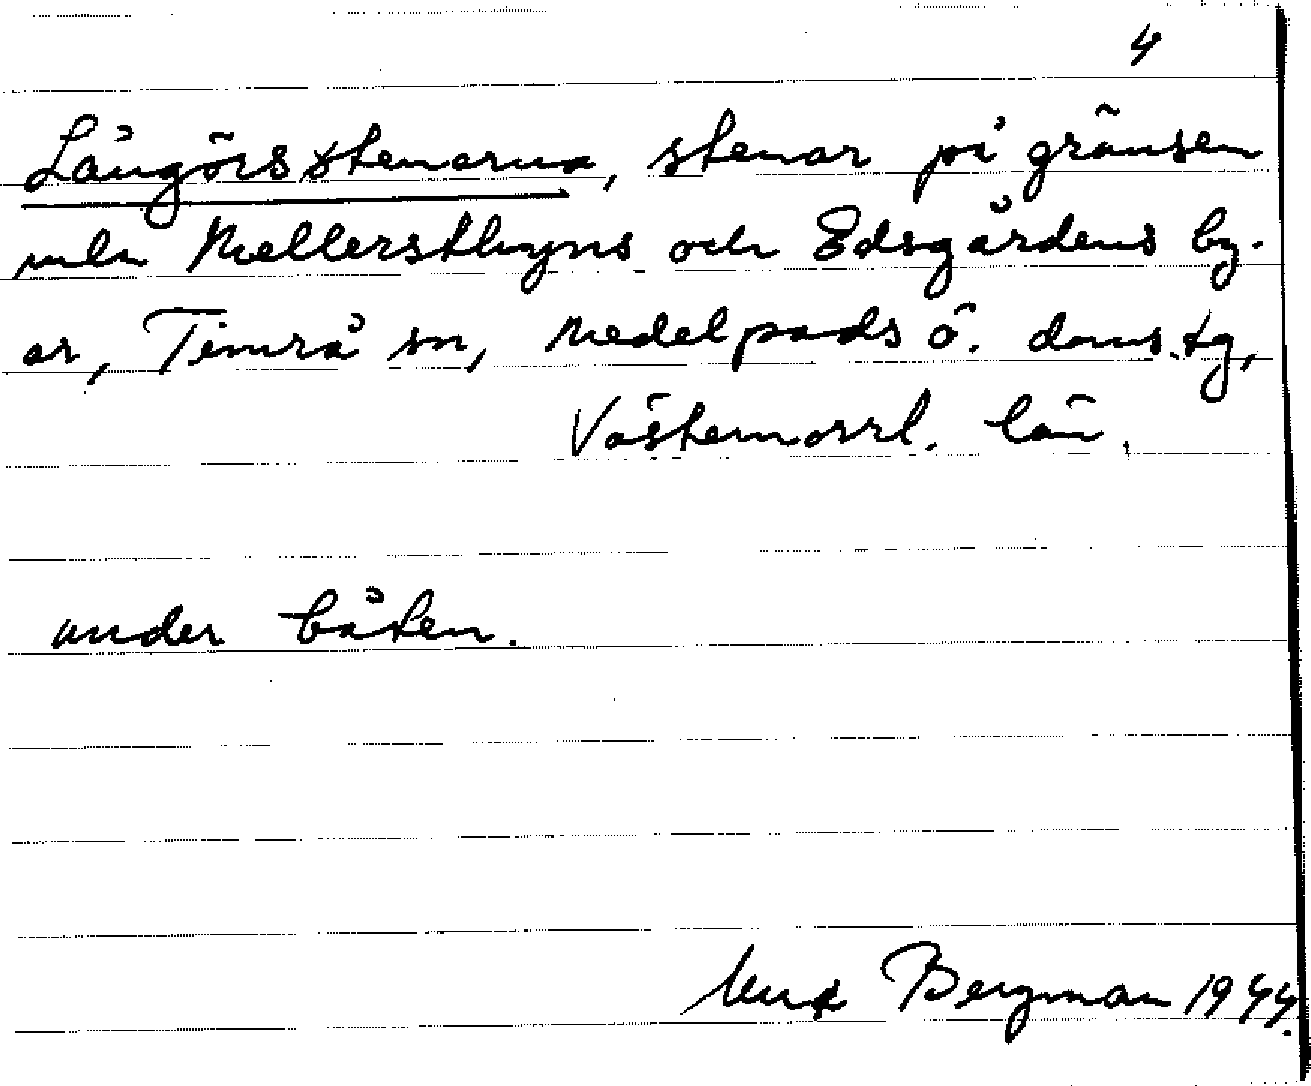 4
Långörsstenarna, stenar på gränsen
mln Mellerstbyns och Edsgårdens by-
ar, Timrå sn, Medelpads ö. doms.tg,
Västernorrl. län.
under båten.
Bergman 1944.